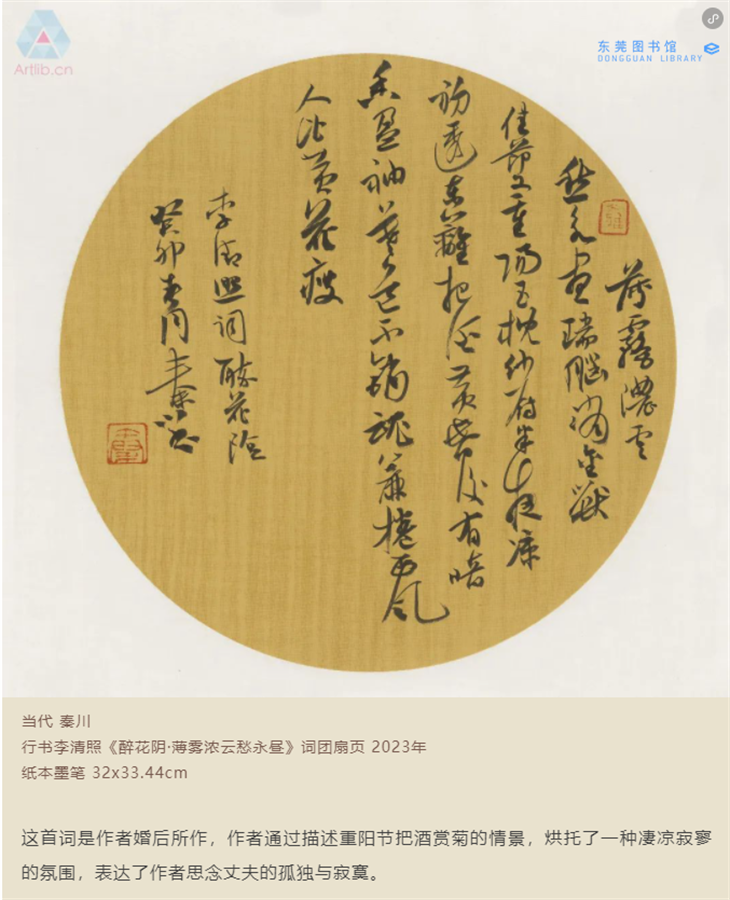 Artlib.cn
东莞图书馆
DONGGUAN LIBRARY
薄霧濃雲
愁永晝瑞腦消金獸
佳節又重陽玉枕紗厨半夜涼
初透東籬把酒黃昏後有暗
香盈袖莫道不銷魂簾捲西風
人比黃花瘦
李清照詞醉花陰
癸卯春月秦川
当代 秦川
行书李清照《醉花阴·薄雾浓云愁永昼》词团扇页 2023年
纸本墨笔 32x33.44cm
这首词是作者婚后所作，作者通过描述重阳节把酒赏菊的情景，烘托了一种凄凉寂寥
的氛围，表达了作者思念丈夫的孤独与寂寞。